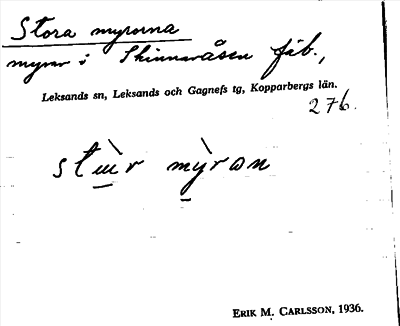 Stora myrorna
myrar i Skinnaråsen fäb.,
Leksands sn, Leksands och Gagnefs tg, Kopparbergs län.
276.
stɯ̀r mỳron
ERIK M. CARLSSON, 1936.